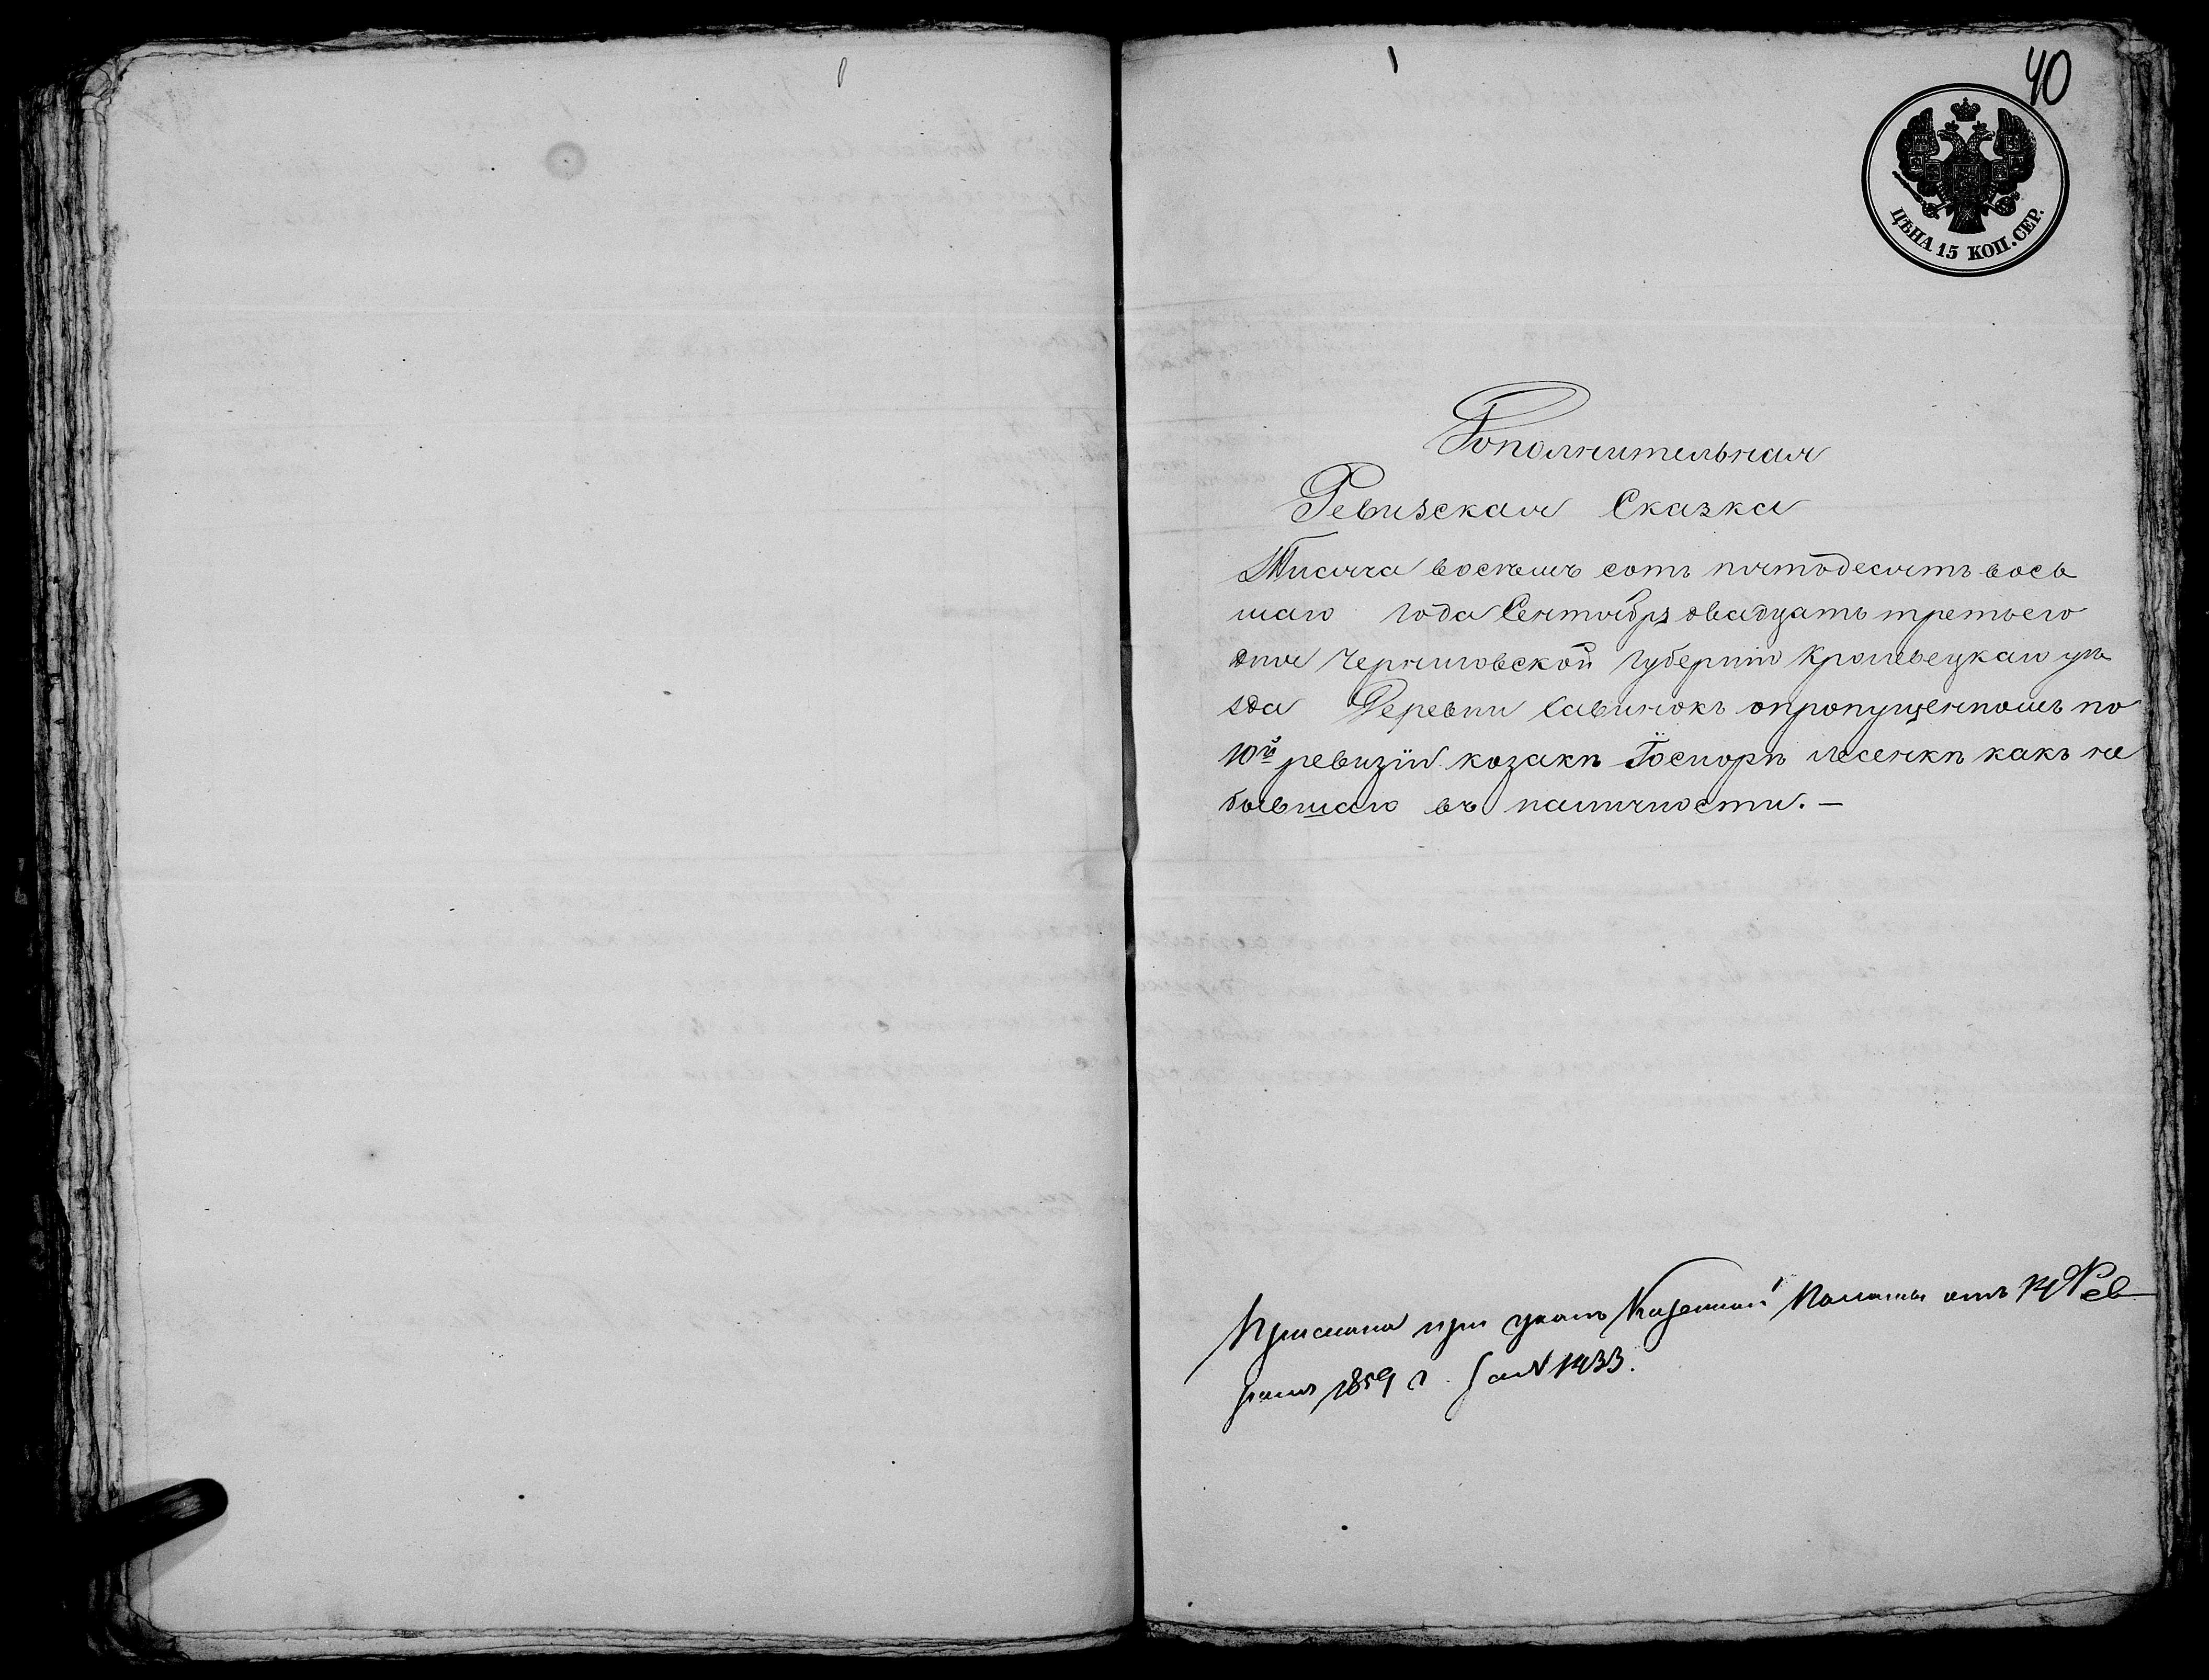 40
ЦѢНА 15 КОП. СЕР.
Дополнительная
Ревизская Сказка
Тисяча восемь сотъ пятодесятъ вось
маго года Сентября двадцать третьего
дня Черниговской Губерніи Кролевецкаго уѣ
зда Деревни Савинокъ опропущенномъ по
10й ревизіи козакѣ лесенкѣ какъ не
бывшаго въ наличности. —
Прислана при указѣ Казенной Палаты отъ 14 Фев
раля 1859 г. за № 1433.